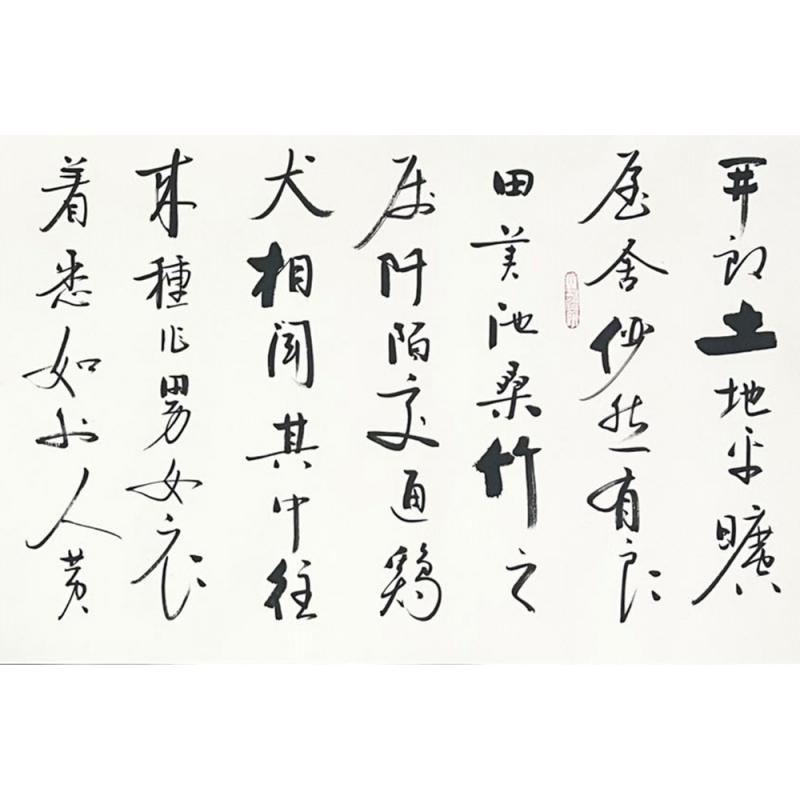 开朗土地平曠
屋舍俨然有良
田美池桑竹之
属阡陌交通鷄
犬相闻其中往
来種作男女衣
着悉如外人黄